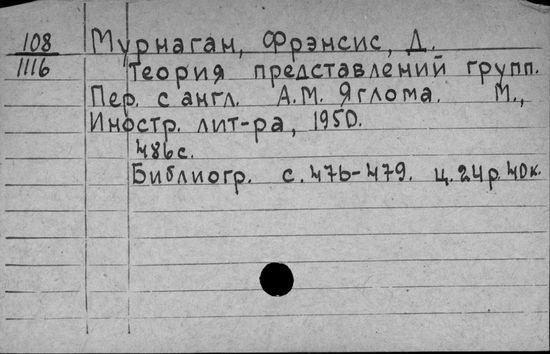 108 Мурнаган, Фрэнсис, Д.
1116 Теория представлений групп.
Пер. с англ. А.М. Яглома. М.,
Иностр. лит-ра, 1950.
486с.
Библиогр. с. 476-479. ц. 24р. 40к.